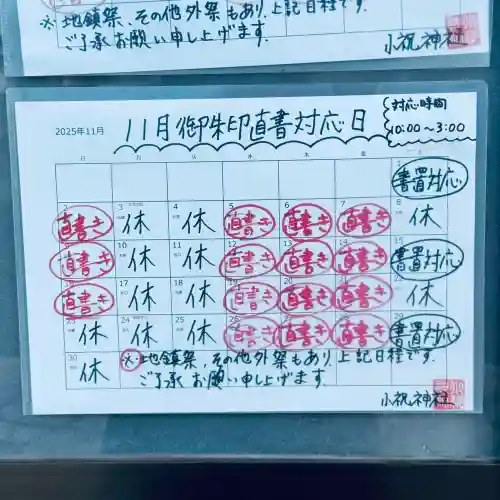 ※地鎮祭、その他外祭もあり、上記日程です。
ご了承お願い申し上げます。
小祝神社
2025年11月
11月御朱印直書対応日
対応時間
10:00～3:00
日 月 火 水 木 金
1
書置対応
2 3 4 5 6 7 8
直書き 休 休 直書き 直書き 直書き 休
9 10 11 12 13 14 15
直書き 休 休 直書き 直書き 直書き 書置対応
17 18
直書き 休 休 直書き 直書き 直書き 休
23 24 25 29
休 休 休 直書き 直書き 直書き 書置対応
30
休
※地鎮祭、その他外祭もあり、上記日程です。
ご了承お願い申し上げます。
小祝神社